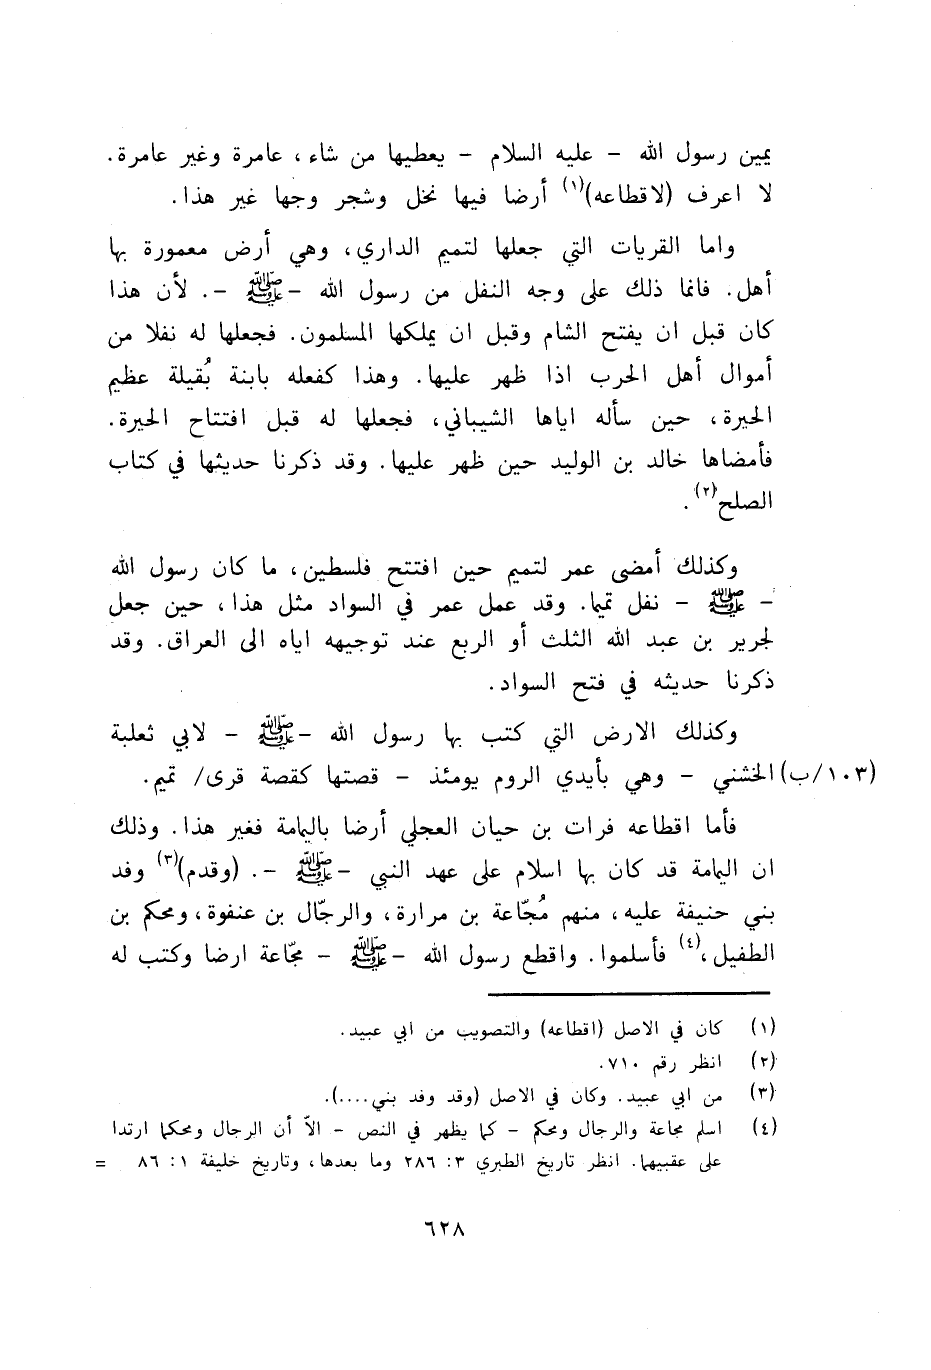 يمين رسول الله - عليه السلام - يعطيها من شاء، عامرة وغير عامرة.
لا اعرف (لاقطاعه)(١) أرضا فيها نخل وشجر وجها غير هذا.
واما القريات التي جعلها لتميم الداري، وهي أرض معمورة بها
أهل. فانما ذلك على وجه النفل من رسول الله - ﷺ -. لأن هذا
كان قبل ان يفتح الشام وقبل ان يملكها المسلمون. فجعلها له نفلا من
أموال أهل الحرب اذا ظهر عليها. وهذا كفعله بابنة بُقيلة عظيم
الحيرة، حين سأله اياها الشيباني، فجعلها له قبل افتتاح الحيرة.
فأمضاها خالد بن الوليد حين ظهر عليها. وقد ذكرنا حديثها في كتاب
الصلح(٢).
وكذلك أمضى عمر لتميم حين افتتح فلسطين، ما كان رسول الله
- ﷺ - نفل تميما. وقد عمل عمر في السواد مثل هذا، حين جعل
لجرير بن عبد الله الثلث أو الربع عند توجيهه اياه الى العراق. وقد
ذكرنا حديثه في فتح السواد.
وكذلك الارض التي كتب بها رسول الله - ﷺ - لابي ثعلبة
(١٠٣/ب) الخشني - وهي بأيدي الروم يومئذ - قصتها كقصة قرى/ تميم.
فأما اقطاعه فرات بن حيان العجلي أرضا باليمامة فغير هذا. وذلك
ان اليمامة قد كان بها اسلام على عهد النبي - ﷺ -. (وقدم)(٣) وفد
بني حنيفة عليه، منهم مُجّاعة بن مرارة، والرجّال بن عنفوة، ومحكم بن
الطفيل،(٤) فأسلموا. واقطع رسول الله - ﷺ - مجّاعة ارضا وكتب له
(١) كان في الاصل (اقطاعه) والتصويب من ابي عبيد.
(٢) انظر رقم ٧١٠.
(٣) من ابي عبيد. وكان في الاصل (وقد وفد بني....).
(٤) اسلم مجاعة والرجال ومحكم - كما يظهر في النص - الاّ أن الرجال ومحكما ارتدا
على عقبيهما. انظر تاريخ الطبري ٣: ٢٨٦ وما بعدها، وتاريخ خليفة ١: ٨٦ =
٦٢٨